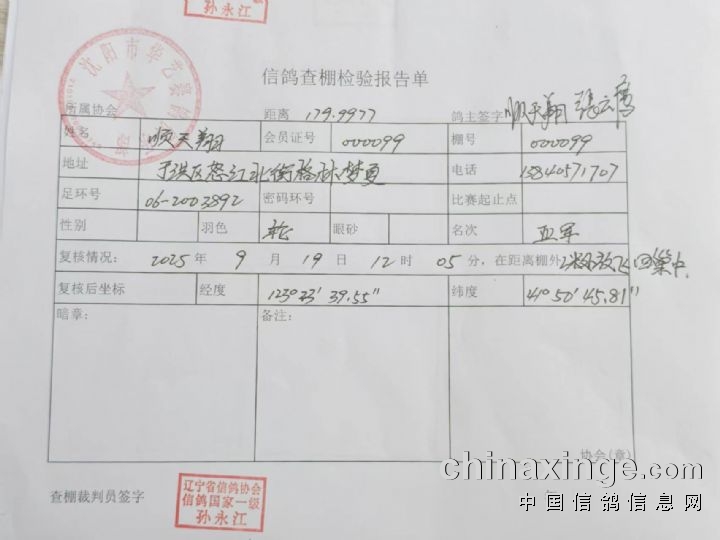 孙永江
沈阳市华艺
信鸽查棚检验报告单
所属协会 距离 179.9977 鸽主签字 顺天翔 张云鹏
姓名 顺天翔 会员证号 000099 棚号 000099
地址 于洪区怒江北街 电话 13840571707
足环号 06-2003892 密码环号 比赛起止点
性别 羽色 眼砂 名次 亚军
复核情况： 2025 年 9 月 19 日 12 时 05 分，在距离棚外 放飞回巢中
复核后坐标 经度 123°23′39.55″ 纬度 41°50′45.81″
暗章： 备注：
协会(章)
查棚裁判员签字
辽宁省信鸽协会
信鸽国家一级
孙永江
chinaxinge.com
中国信鸽信息网